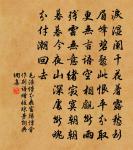 淚濕闌干花著露愁到
眉峰碧聚此恨平分取
更無言語空相覷斷雨
殘雲無意緒寂寞朝朝
暮暮今夜山深處斷魂
分付潮回去
毛滂惜分飛富陽僧舍
作別語贈妓瓊芳